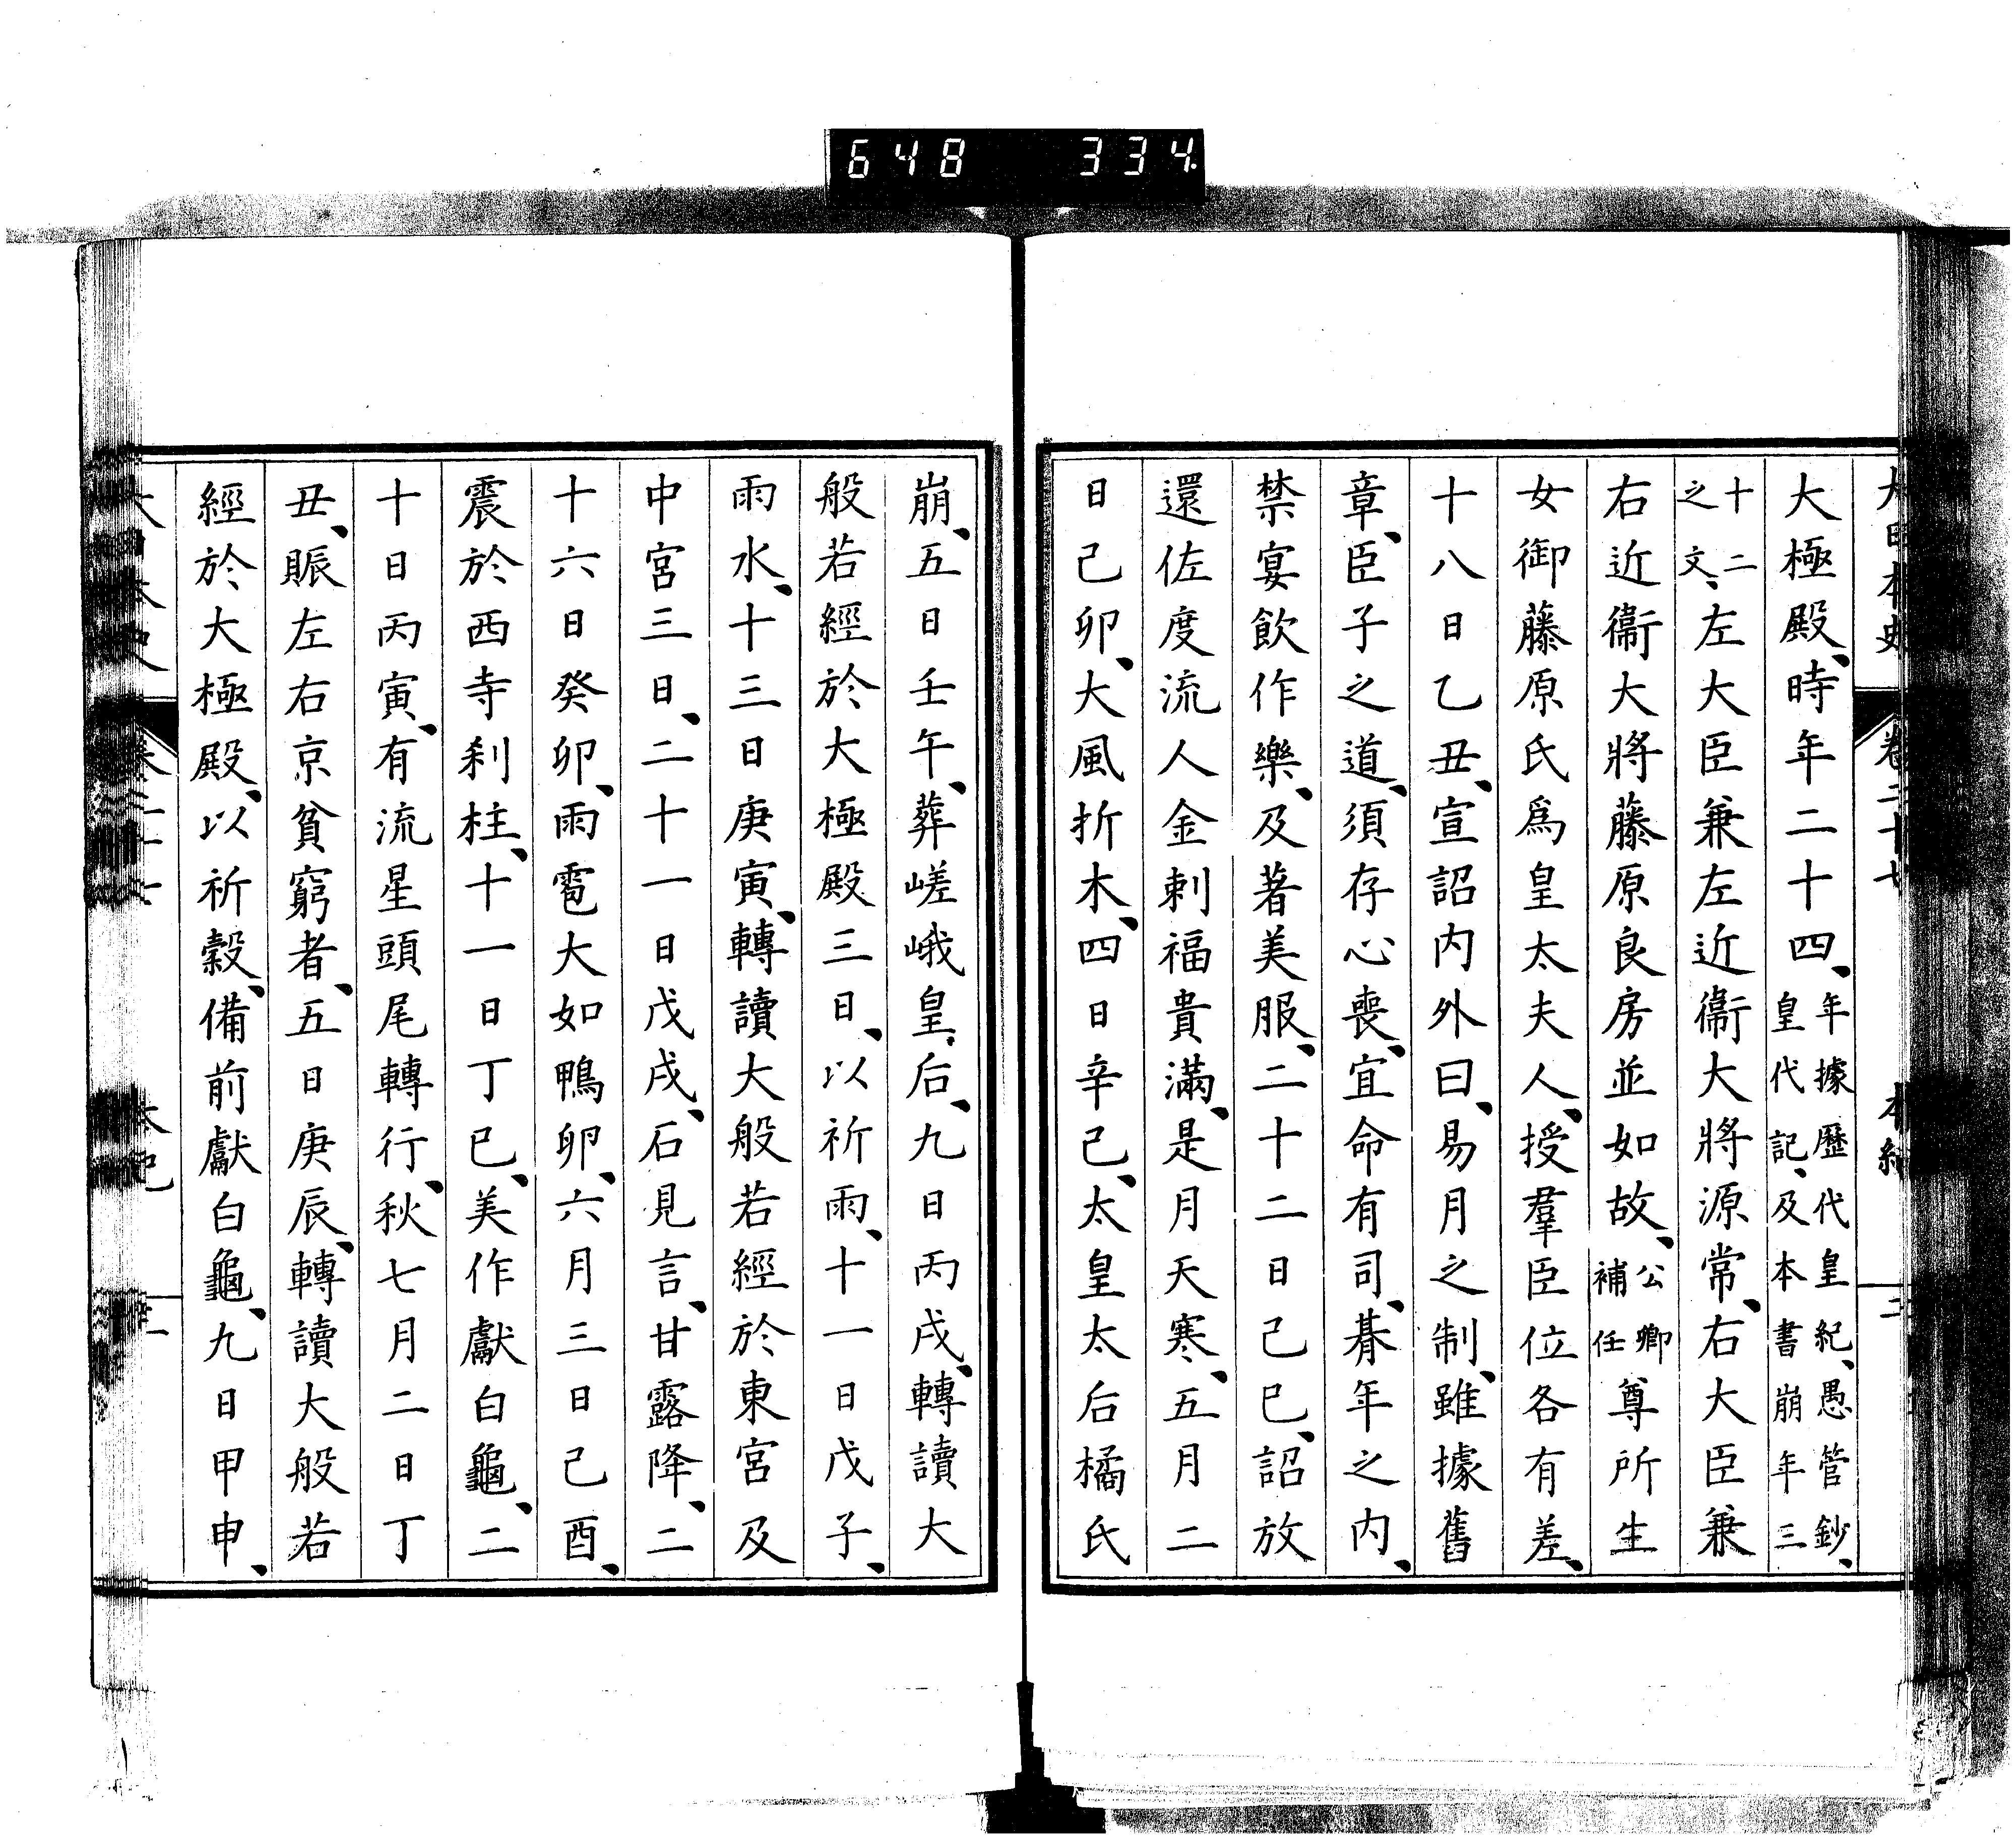 648 334
大日本史 卷二十七 本紀 二
大極殿、時年二十四、年據歷代皇紀、愚管鈔、皇代記、及本書崩年三
十二之文、左大臣兼左近衞大將源常、右大臣兼
右近衞大將藤原良房並如故、公卿補任尊所生
女御藤原氏爲皇太夫人、授羣臣位各有差、
十八日乙丑、宣詔内外曰、易月之制、雖據舊
章、臣子之道、須存心喪、宜命有司、朞年之内、
禁宴飮作樂、及著美服、二十二日己巳、詔放
還佐度流人金刺福貴滿、是月天寒、五月二
日己卯、大風折木、四日辛巳、太皇太后橘氏
崩、五日壬午、葬嵯峨皇后、九日丙戌、轉讀大
般若經於大極殿三日、以祈雨、十一日戊子、
雨水、十三日庚寅、轉讀大般若經於東宮及
中宮三日、二十一日戊戌、石見言、甘露降、二
十六日癸卯、雨雹大如鴨卵、六月三日己酉、
震於西寺刹柱、十一日丁巳、美作獻白龜、二
十日丙寅、有流星頭尾轉行、秋七月二日丁
丑、賑左右京貧窮者、五日庚辰、轉讀大般若
經於大極殿、以祈穀、備前獻白龜、九日甲申、